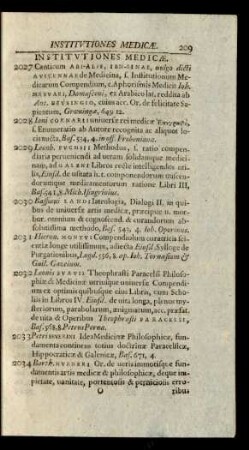 INSTITVTIONES MEDICÆ. 209
INSTITVTIONES MEDICÆ.
2027 Canticum ABIALIS, IBN-SINAE, vulgo dicti
AVICENNAE de Medicina, s. Institutionum Me-
dicarum Compendium, c. Aphorismis Medicis Ioh.
MESVAEI, Damasceni, ex Arabico lat. reddita ab
Ant. DEVSINGIO, cuius acc. Or. de felicitate Sa-
pientum, Groningæ, 649. 12.
2028 Iani CORNARII vniuersæ rei medicæ
s. Enumeratio ab Autore recognita ac aliquot lo-
cis aucta, Bas. 534, 4. in off. Frobeniana.
2029 Leonh. FVCHSII Methodus, s. ratio compen-
diaria perueniendi ad ueram solidamque medici-
nam, ad GALENI Libros recte intelligendos uti-
lis, Eiusd. de usitata h. t. componendorum miscen-
dorumque medicamentorum ratione Libri III,
Bas. 541, 8. Mich. Isingrinius.
2030 Bassiani LANDI Iatrologia, Dialogi II. in quibus
de vniuersæ artis medicæ, præcipue u. mor-
bor. omnium & cognoscend. & curandorum ab-
solutissima methodo, Bas. 543, 4. Ioh. Oporinus.
2031 Hieron. MONTVI Compendium curatricis scien-
tiæ longe utilissimum, adiecta Eiusd. Sylloge de
Purgationibus, Lugd. 556, 8. ap. Ioh. Tornæsium &
Guil. Gazeium.
2032 Leonis SVAVII Theophrasti Paracelsi Philoso-
phiæ & Medicinæ utriusque uniuersæ Compendium
ex optimis quibusque eius Libris, cum Scho-
liis in Libros IV. Eiusd. de uita longa, plenos my-
steriorum, parabolarum, ænigmatum, acc. præfat.
de uita & Operibus Theophrasti PARACELSI,
Bas. 568, 8. Petrus Perna.
2033 Petri SEVERINI Idea Medicinæ Philosophicæ, fun-
damenta continens totius doctrinæ Paracelsicæ,
Hippocraticæ & Galenicæ, Bas. 671, 4.
2034 Barth. Or. de uerissimo itisque fun-
damentis artis medicæ & philosophicæ, deque im-
pietate, uanitate, portentosis & perniciosis erro-
O ribus